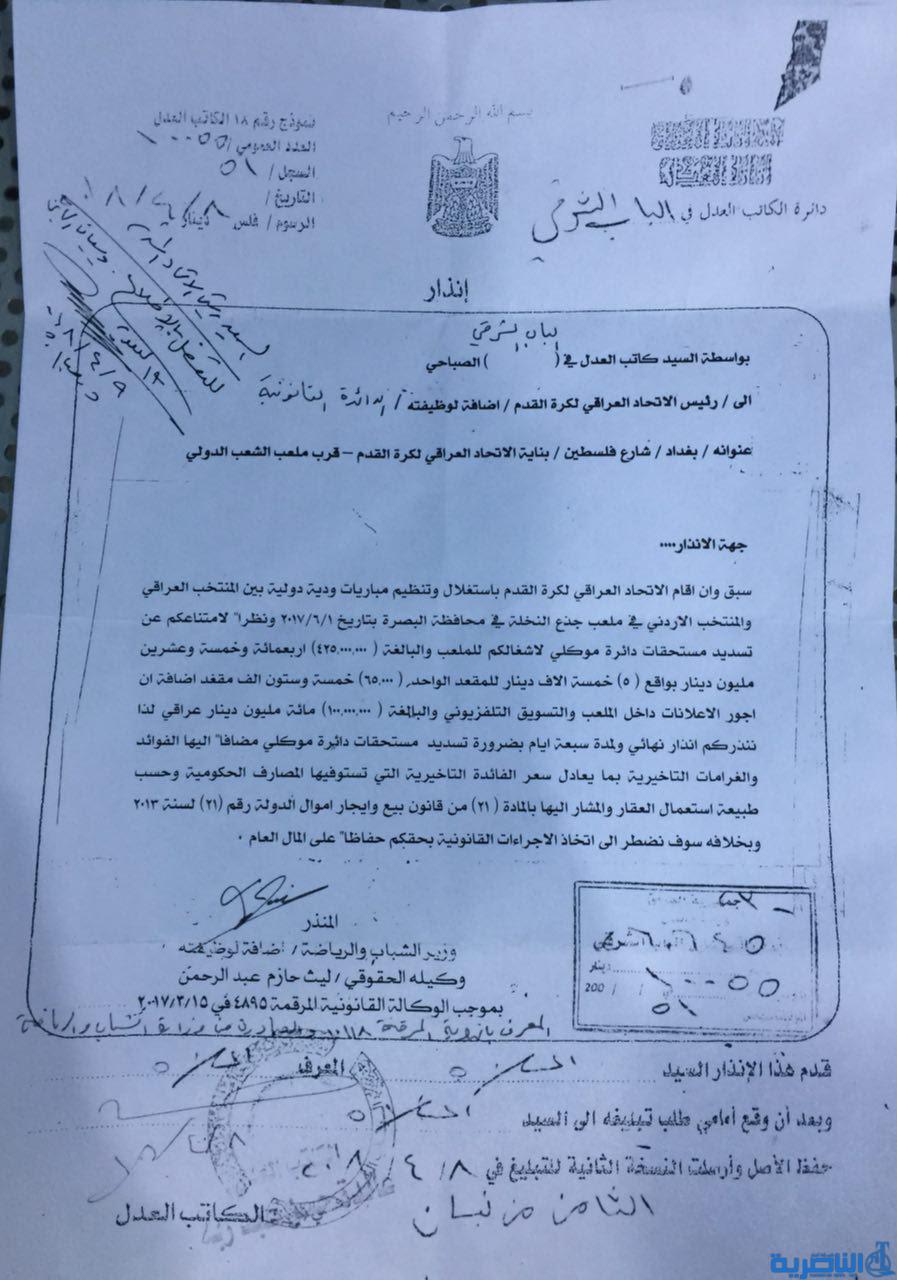 بسم الله الرحمن الرحيم
نموذج رقم ١٨ الكاتب العدل
العدد العمومي / ١٠٠٥٥
السجل / ٥١
التاريخ / ٨ / ٤ /
الرسوم / فلس دينار
دائرة الكاتب العدل في الباب الشرقي
السيد
للتفضل بالاطلاع
إنذار
الباب الشرقي
بواسطة السيد كاتب العدل في ( ) الصباحي
الى / رئيس الاتحاد العراقي لكرة القدم / اضافة لوظيفته / الدائرة القانونية
عنوانه / بغداد / شارع فلسطين / بناية الاتحاد العراقي لكرة القدم – قرب ملعب الشعب الدولي
جهة الانذار....
سبق وان اقام الاتحاد العراقي لكرة القدم باستغلال وتنظيم مباريات ودية دولية بين المنتخب العراقي
والمنتخب الاردني في ملعب جذع النخلة في محافظة البصرة بتاريخ ٢٠١٧/٦/١ ونظرا" لامتناعكم عن
تسديد مستحقات دائرة موكلي لاشغالكم للملعب والبالغة (٤٢٥,٠٠٠,٠٠٠) اربعمائة وخمسة وعشرين
مليون دينار بواقع (٥) خمسة الاف دينار للمقعد الواحد, (٦٥,٠٠٠) خمسة وستون الف مقغد اضافة ان
اجور الاعلانات داخل الملعب والتسويق التلفزيوني والبالغة (١٠٠,٠٠٠,٠٠٠) مائة مليون دينار عراقي لذا
ننذركم انذار نهائي ولمدة سبعة ايام بضرورة تسديد مستحقات دائيرة موكلي مضافا" اليها الفوائد
والغرامات التاخيرية بما يعادل سعر الفائدة التاخيرية التي تستوفيها المصارف الحكومية وحسب
طبيعة استعمال العقار والمشار اليها بالمادة (٢١) من قانون بيع وايجار اموال الدولة رقم (٢١) لسنة ٢٠١٣
وبخلافه سوف نضطر الى اتخاذ الاجراءات القانونية بحقكم حفاظا" على المال العام .
المنذر
وزير الشباب والرياضة / اضافة لوظيفته
وكيله الحقوقي / ليث حازم عبد الرحمن
بموجب الوكالة القانونية المرقمة ٤٨٩٥ في ٢٠١٧/٣/١٥
دينار
200 / /
٥١
قدم هذا الإنذار السيد المعرف
وبعد أن وقع أمامي طلب تبليغه الى السيد
حفظ الأصل وأرسلت النسخة الثانية للتبليغ في ٤/٨
الثامن من نيسان
الكاتب العدل
الناصرية